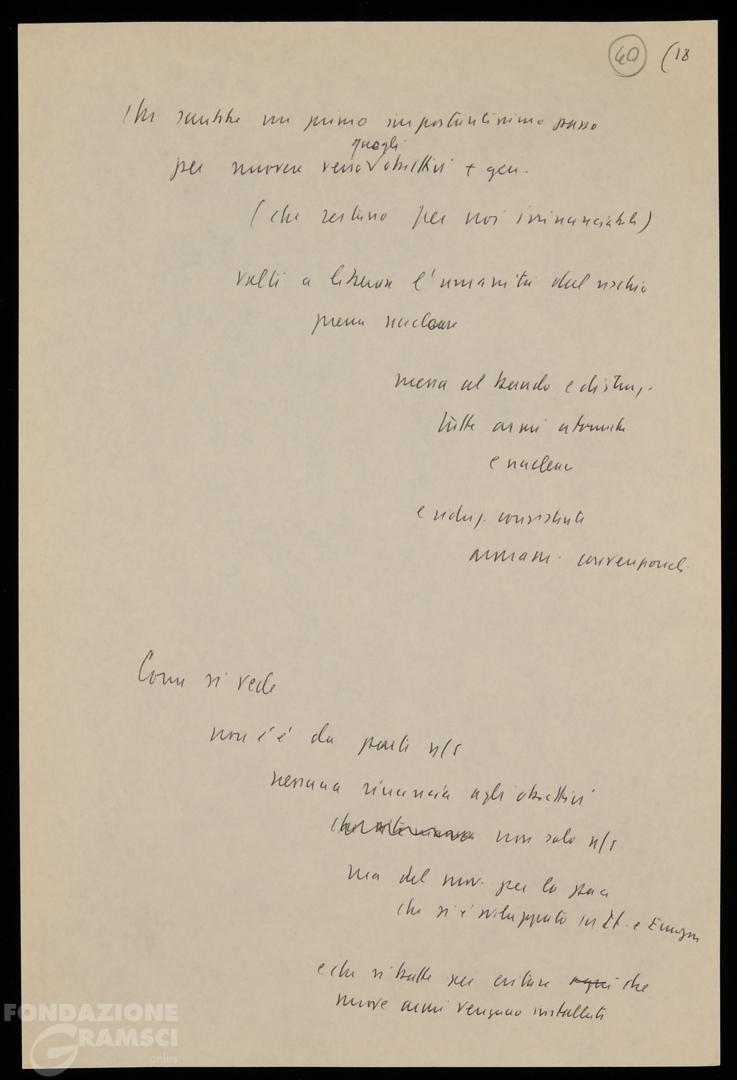 40 (18
che sarebbe un primo importantissimo passo
quegli
per muovere verso obiettivi + gen.
(che restano per noi irrinunciabili)
volti a liberare l'umanità dal rischio
guerra nucleare
messa al bando e distruz.
tutte armi atomiche
e nucleari
e riduz. consistente
armam. convenzionali
Come si vede
non c'è da parte n/s
nessuna rinuncia agli obiettivi
non solo n/s
ma del mov. per la pace
che si è sviluppato in It. e Europa
e che si batte per evitare ogni che
nuove armi vengano installate
FONDAZIONE
GRAMSCI
onlus